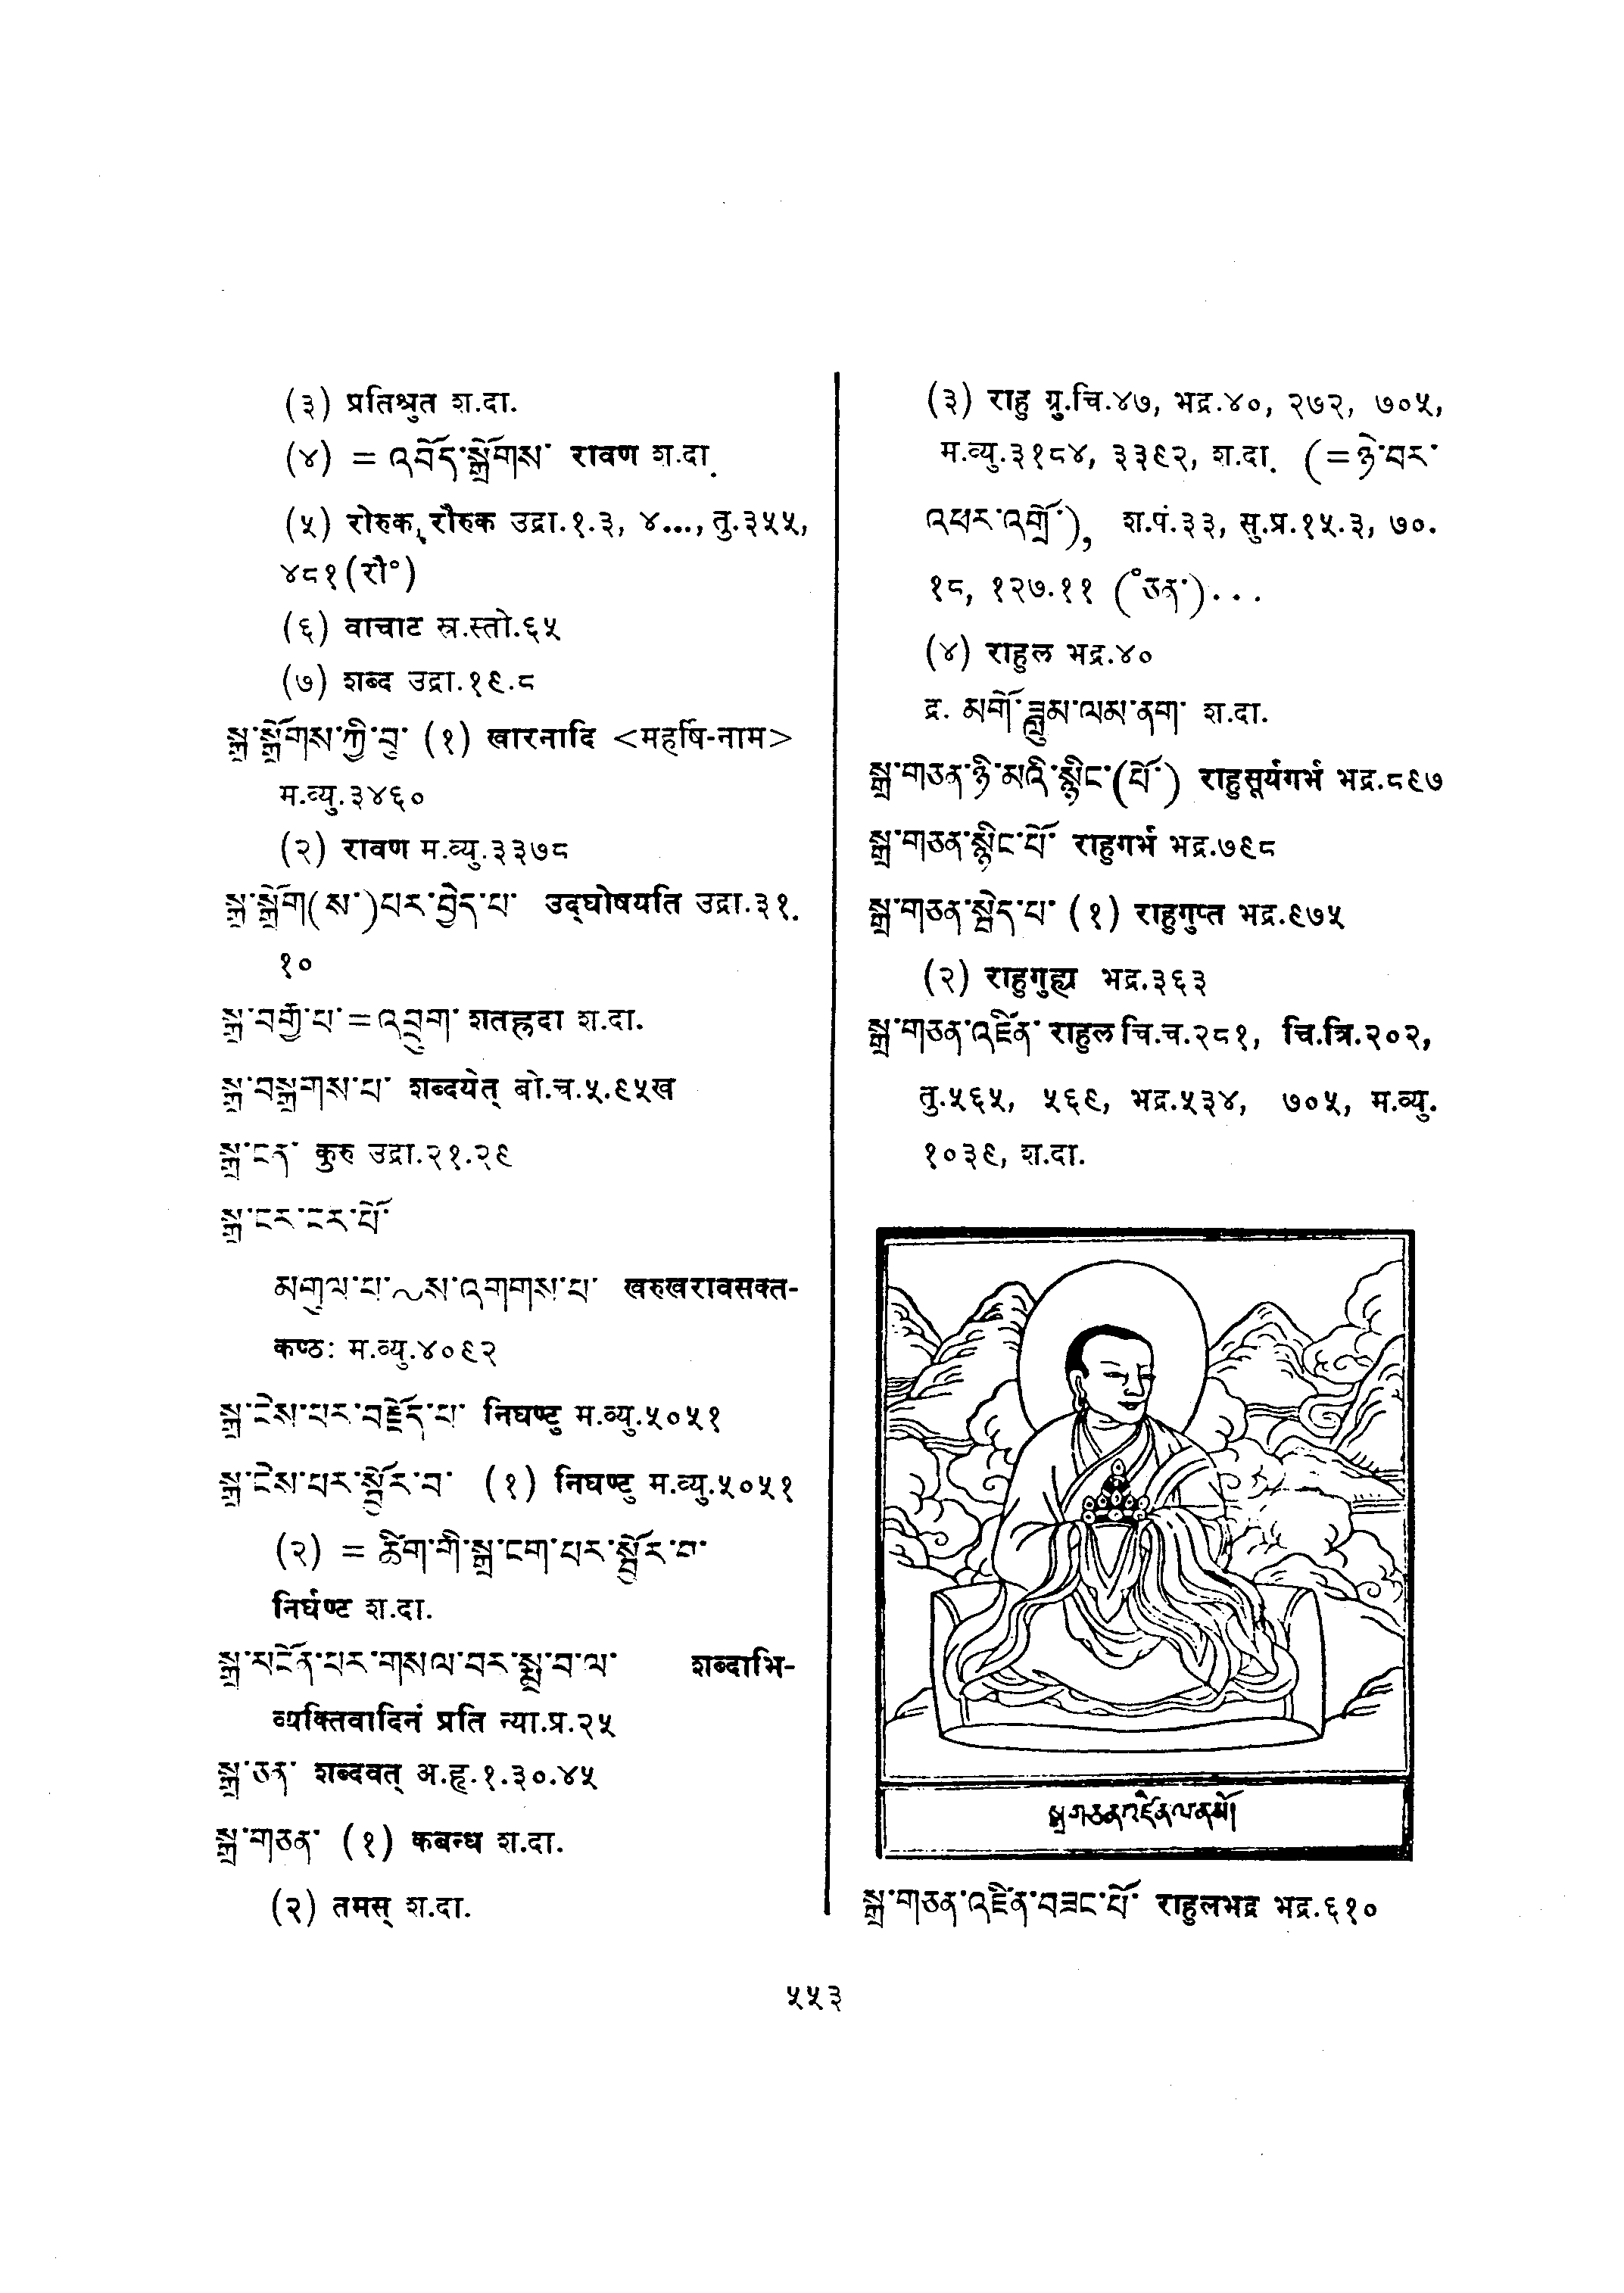 (३) प्रतिश्रुत श.दा.
(४) = འབོད་སྒྲོགས་ रावण श.दा.
(५) रोरुक, रौरुक उद्रा.१.३, ४..., तु.३५५,
४८१(रौ°)
(६) वाचाट स्र.स्तो.६५
(७) शब्द उद्रा.१९.८
སྒྲ་སྒྲོགས་ཀྱི་བུ་ (१) खारनादि <महर्षि-नाम>
म.व्यु.३४६०
(२) रावण म.व्यु.३३७८
སྒྲ་སྒྲོག(ས་)པར་བྱེད་པ་ उद्घोषयति उद्रा.३१.
१०
སྒྲ་བརྒྱ་པ་=འབྲུག་ शतह्नदा श.दा.
སྒྲ་བསྒྲགས་པ་ शब्दयेत् बो.च.५.९५ख
སྒྲ་ངན་ कुरु उद्रा.२१.२९
སྒྲ་ངར་ངར་པོ་
མགུལ་པ་~ས་འགགས་པ་ खरुखरावसक्त-
कण्ठः म.व्यु.४०९२
སྒྲ་ངེས་པར་བརྗོད་པ་ निघण्टु म.व्यु.५०५१
སྒྲ་ངེས་པར་སྦྱོར་བ་ (१) निघण्टु म.व्यु.५०५१
(२) = ཚིག་གི་སྒྲ་ངག་པར་སྦྱོར་བ་
निर्घण्ट श.दा.
སྒྲ་མངོན་པར་གསལ་བར་སྨྲ་བ་ལ་ शब्दाभि-
व्यक्तिवादिनं प्रति न्या.प्र.२५
སྒྲ་ཅན་ शब्दवत् अ.हृ.१.३०.४५
སྒྲ་གཅན་ (१) कबन्ध श.दा.
(२) तमस् श.दा.
(३) राहु ग्रु.चि.४७, भद्र.४०, २७२, ७०५,
म.व्यु.३१८४, ३३९२, श.दा. (=ཉེ་བར་
འཕར་འགྲོ་), श.पं.३३, सु.प्र.१५.३, ७०.
१८, १२७.११ (°ཅན་)...
(४) राहुल भद्र.४०
द्र. མགོ་ཟླུམ་ལམ་ནག་ श.दा.
སྒྲ་གཅན་ཉི་མའི་སྙིང་(པོ་) राहुसूर्यगर्भ भद्र.८९७
སྒྲ་གཅན་སྙིང་པོ་ राहुगर्भ भद्र.७९८
སྒྲ་གཅན་སྦེད་པ་ (१) राहुगुप्त भद्र.९७५
(२) राहुगुह्य भद्र.३६३
སྒྲ་གཅན་འཛིན་ राहुल चि.च.२८१, चि.त्रि.२०२,
तु.५६५, ५६९, भद्र.५३४, ७०५, म.व्यु.
१०३९, श.दा.
སྒྲ་གཅན་འཛིན་ལ་ན་མོ།
སྒྲ་གཅན་འཛིན་བཟང་པོ་ राहुलभद्र भद्र.६१०
५५३